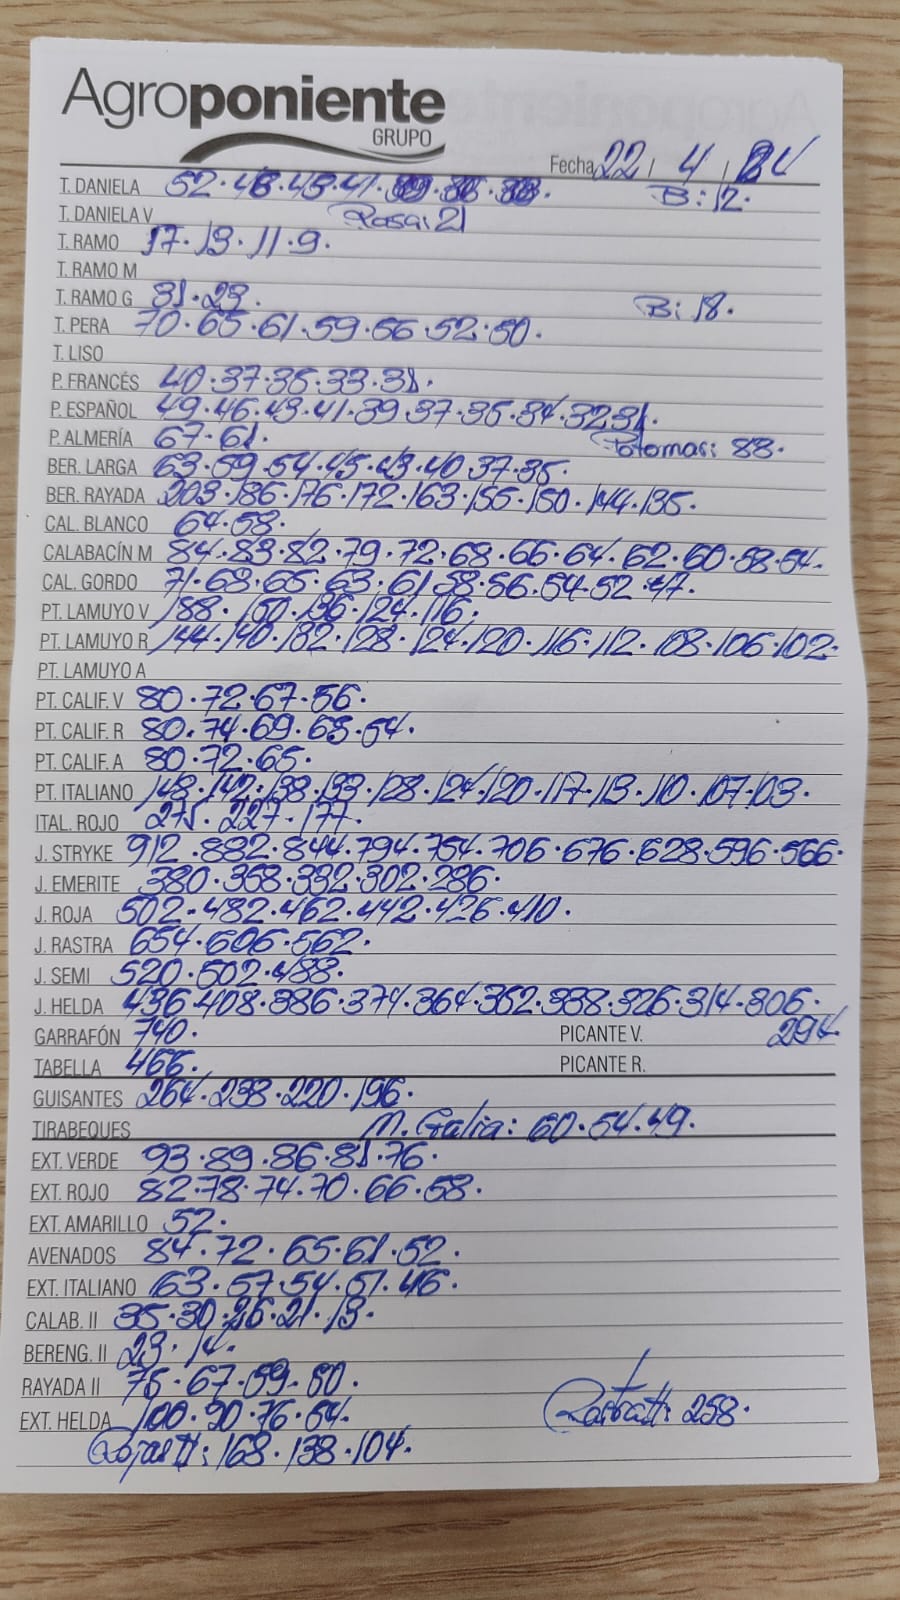 Agroponiente
GRUPO
Fecha 22 / 4 / 24
T. DANIELA 52·48·43·41· B: 12·
T. DANIELA V Rosa: 21
T. RAMO 17·13·11·9·
T. RAMO M
T. RAMO G 31·23· B: 18·
T. PERA 70·65·61·59·56·52·50·
T. LISO
P. FRANCÉS 40·37·35·33·31·
P. ESPAÑOL 49·46·43·41·39·37·35·34·32·31·
P. ALMERÍA 67·61· 88·
BER. LARGA 63·59·54·45·43·40·37·35·
BER. RAYADA 203·186·176·172·163·155·150·144·135·
CAL. BLANCO 64·58·
CALABACÍN M 84·83·82·79·72·68·66·64·62·60·58·54·
CAL. GORDO 71·68·65·63·61·58·56·54·52·47·
PT. LAMUYO V 188·150·136·124·116·
PT. LAMUYO R 144·140·132·128·124·120·116·112·108·106·102·
PT. LAMUYO A
PT. CALIF. V 80·72·67·56·
PT. CALIF. R 80·74·69·63·54·
PT. CALIF. A 80·72·65·
PT. ITALIANO 148·142·138·133·128·124·120·117·113·110·107·103·
ITAL. ROJO 275·227·177·
J. STRYKE 912·882·844·794·754·706·676·628·596·566·
J. EMERITE 380·358·332·302·286·
J. ROJA 502·482·462·442·426·410·
J. RASTRA 654·606·562·
J. SEMI 520·502·488·
J. HELDA 436·408·386·374·364·352·338·326·314·306·
GARRAFÓN 740· PICANTE V. 294·
TABELLA 466· PICANTE R.
GUISANTES 264·238·220·196·
TIRABEQUES M. Galia: 60·54·49·
EXT. VERDE 93·89·86·81·76·
EXT. ROJO 82·78·74·70·66·58·
EXT. AMARILLO 52·
AVENADOS 84·72·65·61·52·
EXT. ITALIANO 63·57·54·51·46·
CALAB. II 35·30·26·21·13·
BERENG. II 23·14·
RAYADA II 75·67·59·50·
EXT. HELDA 100·90·76·64· Rastra II: 258·
Roja II: 168·138·104·